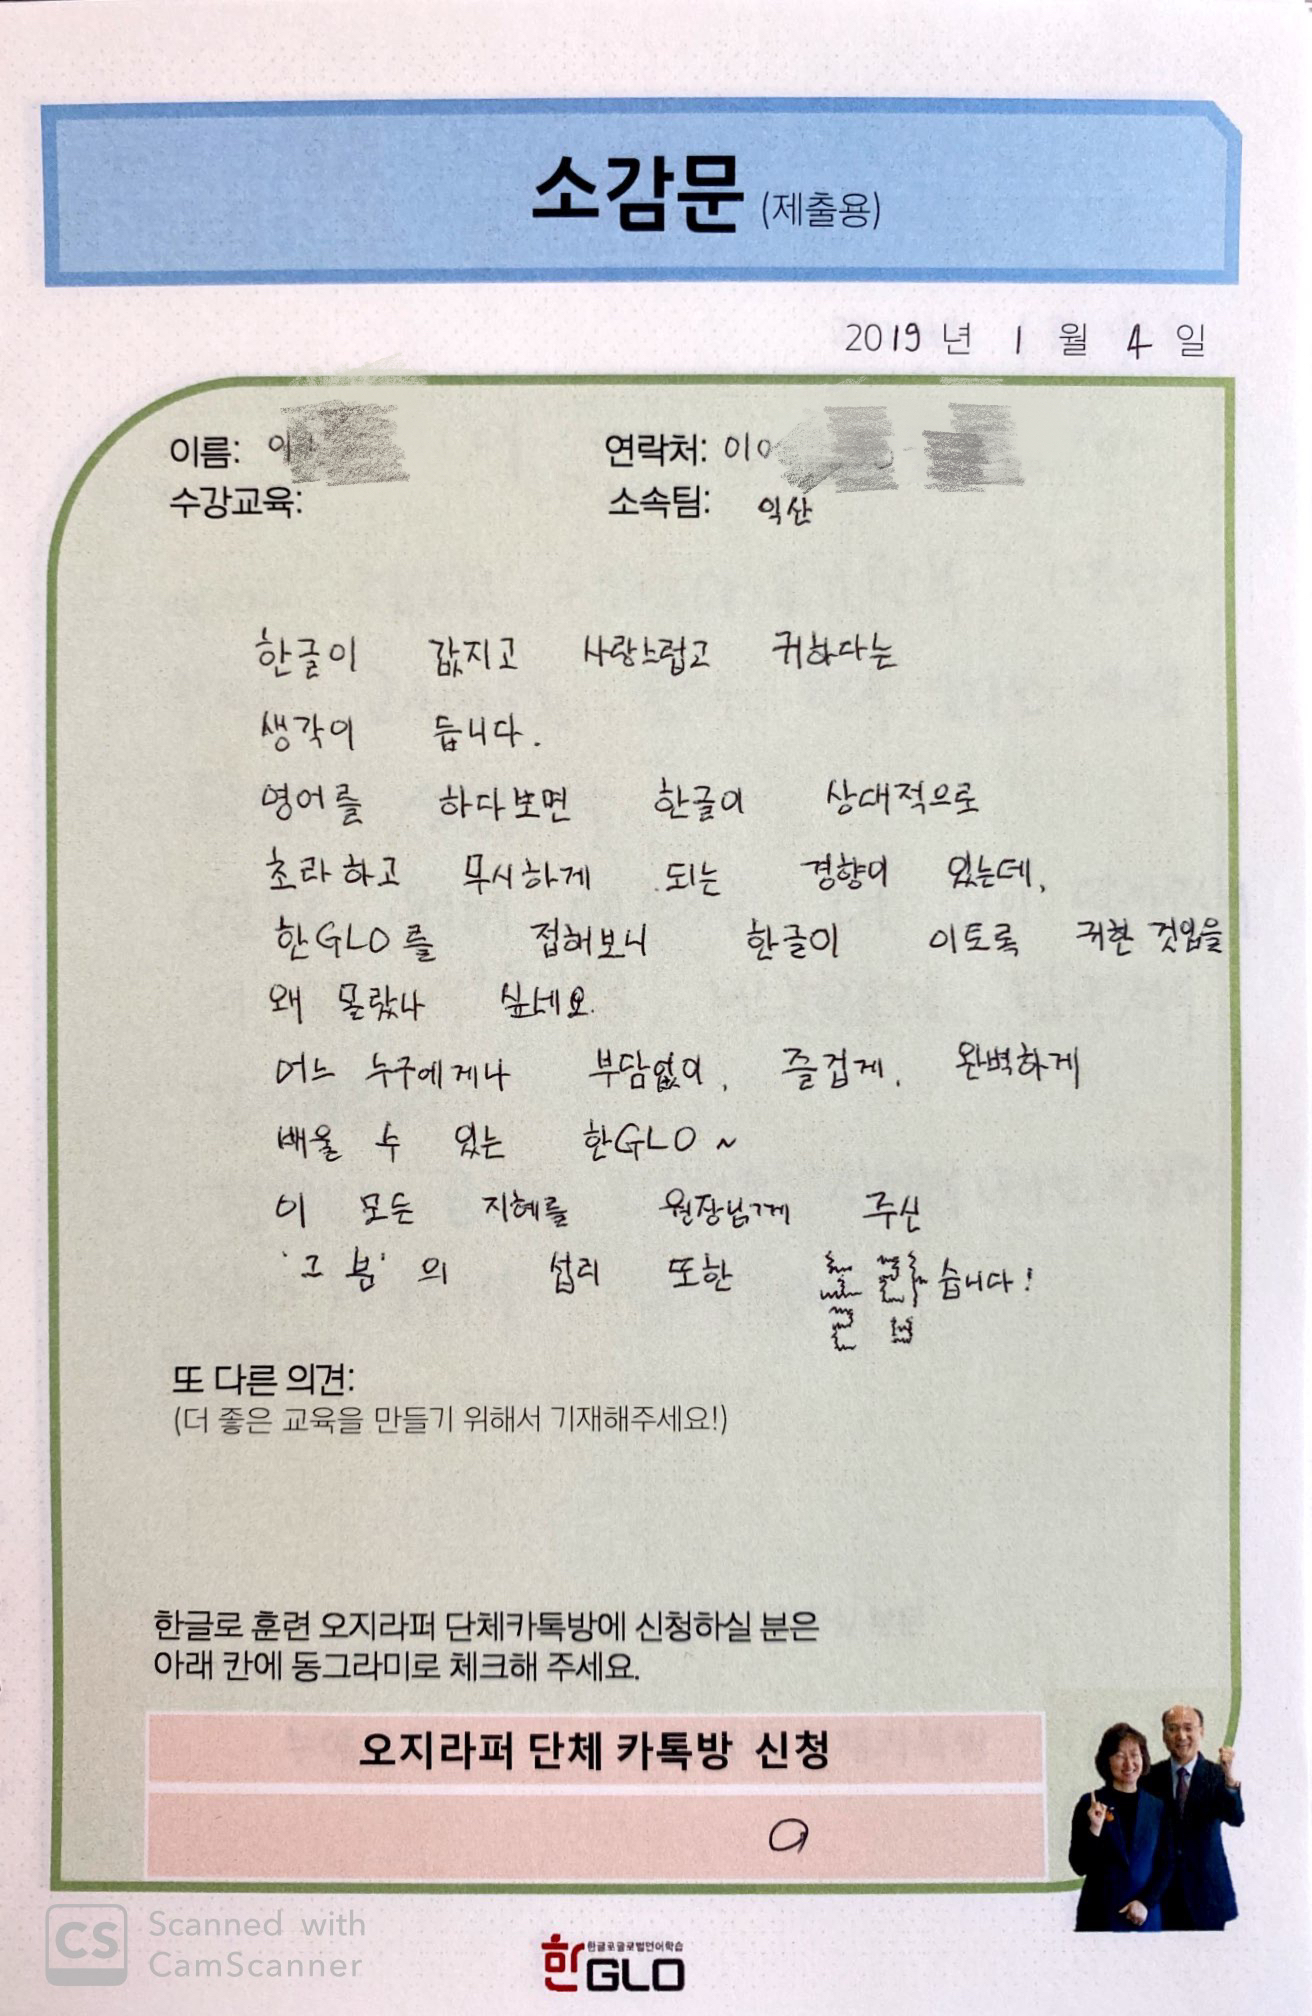 소감문 (제출용)
2019년 1월 4일
이름: 이
연락처: 010
수강교육:
소속팀: 익산
한글이 값지고 사랑스럽고 귀하다는
생각이 듭니다.
영어를 하다보면 한글이 상대적으로
초라하고 무시하게 되는 경향이 있는데,
한GLO를 접해보니 한글이 이토록 귀한 것임을
왜 몰랐나 싶네요.
어느 누구에게나 부담없이, 즐겁게, 완벽하게
배울 수 있는 한GLO~
이 모든 지혜를 원장님께 주신
'그 분'의 섭리 또한 놀랍습니다!
또 다른 의견:
(더 좋은 교육을 만들기 위해서 기재해주세요!)
한글로 훈련 오지라퍼 단체카톡방에 신청하실 분은
아래 칸에 동그라미로 체크해 주세요.
오지라퍼 단체 카톡방 신청
CS Scanned with
CamScanner
한글로글로벌언어학습
한GLO